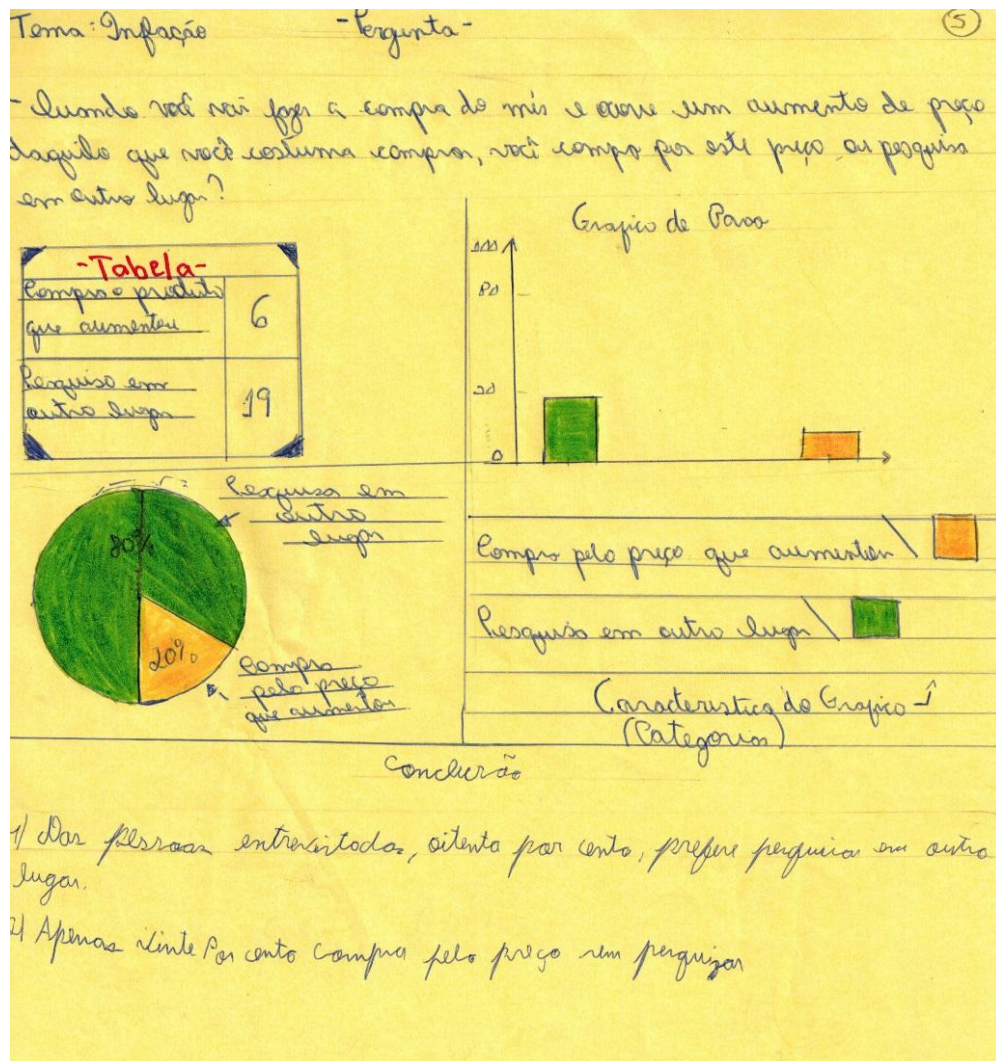 Tema: Inflação
-Pergunta-
5
- Quando você vai fazer a compra do mês e ocorre um aumento de preço
daquilo que você costuma comprar, você compra por este preço ou pesquisa
em outro lugar?
-Tabela-
Compro o produto
que aumentou
6
Pesquiso em
outro lugar
19
Grafico de Barra
100
80
20
0
80%
20%
Pesquisa em
outro
lugar
Compra
pelo preço
que aumentou
Compro pelo preço que aumentou
Pesquiso em outro lugar
Caracteristica do Grafico
(Categorias)
Conclusão
1) Das pessoas entrevistadas, oitenta por cento, prefere pesquisar em outro
lugar.
2) Apenas vinte Por cento compra pelo preço sem pesquisar